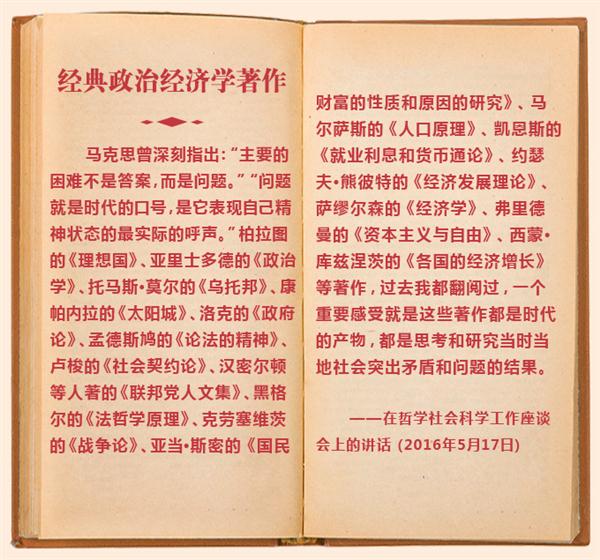 经典政治经济学著作
马克思曾深刻指出：“主要的
困难不是答案，而是问题。”“问题
就是时代的口号，是它表现自己精
神状态的最实际的呼声。”柏拉图
的《理想国》、亚里士多德的《政治
学》、托马斯·莫尔的《乌托邦》、康
帕内拉的《太阳城》、洛克的《政府
论》、孟德斯鸠的《论法的精神》、
卢梭的《社会契约论》、汉密尔顿
等人著的《联邦党人文集》、黑格
尔的《法哲学原理》、克劳塞维茨
的《战争论》、亚当·斯密的《国民
财富的性质和原因的研究》、马
尔萨斯的《人口原理》、凯恩斯的
《就业利息和货币通论》、约瑟
夫·熊彼特的《经济发展理论》、
萨缪尔森的《经济学》、弗里德
曼的《资本主义与自由》、西蒙·
库兹涅茨的《各国的经济增长》
等著作，过去我都翻阅过，一个
重要感受就是这些著作都是时代
的产物，都是思考和研究当时当
地社会突出矛盾和问题的结果。
——在哲学社会科学工作座谈
会上的讲话 (2016年5月17日)